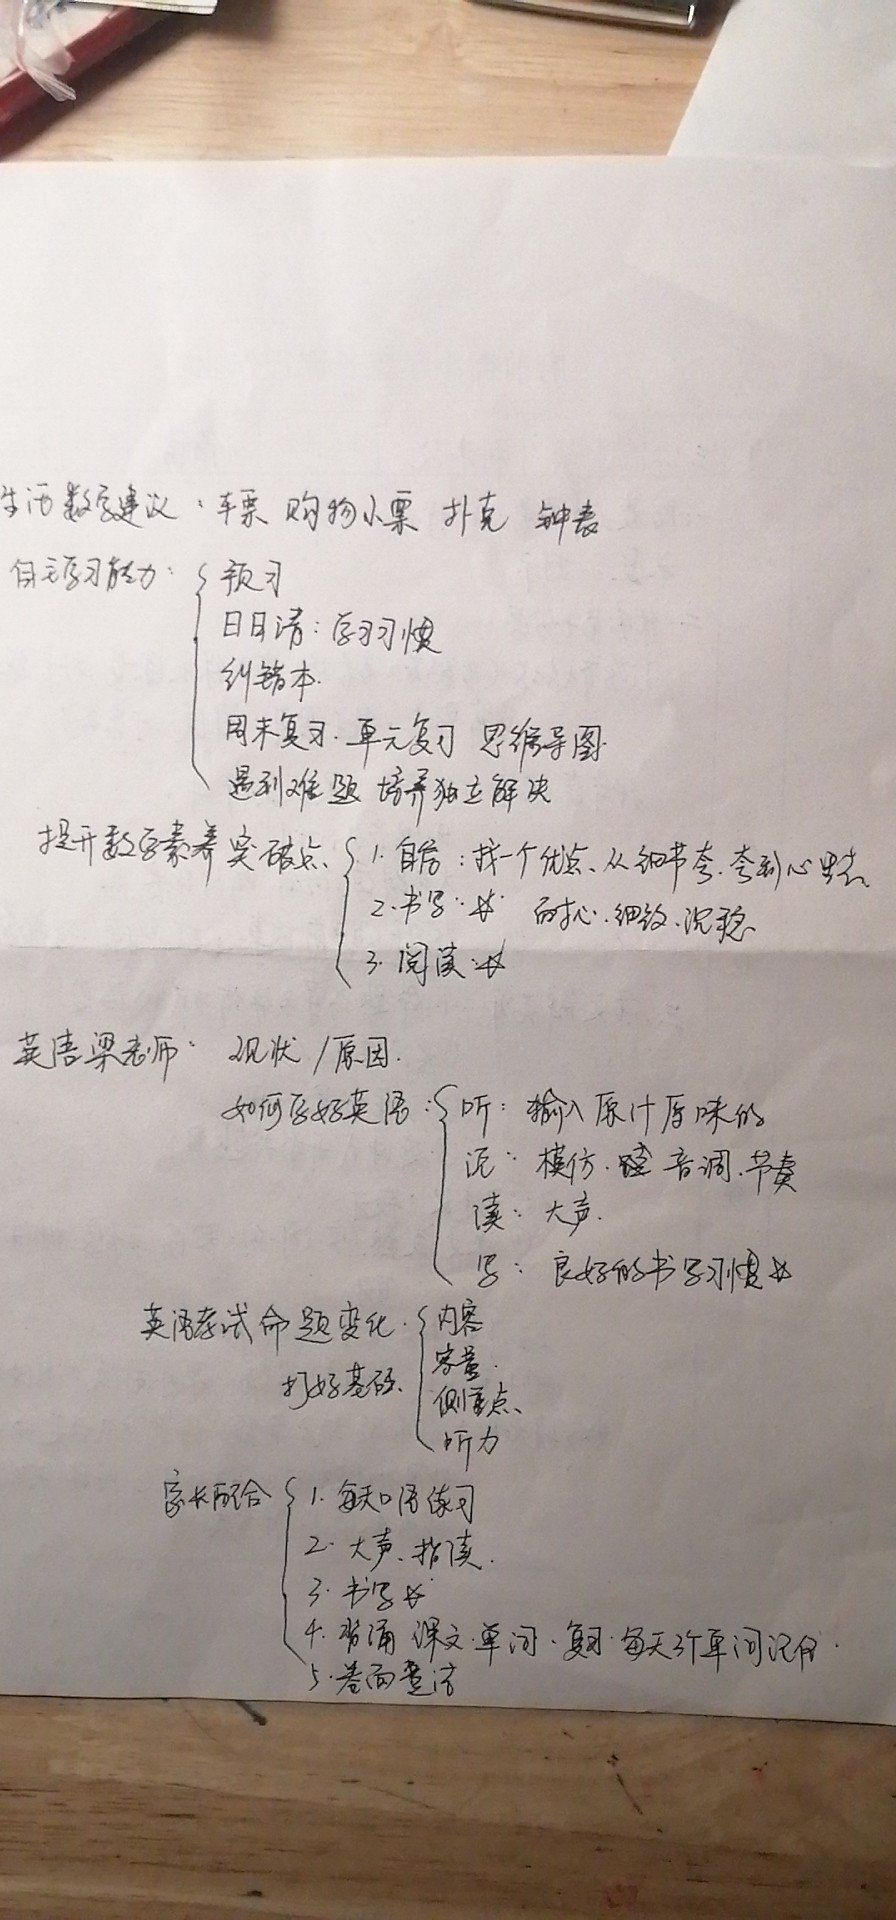 生活数学建议：车票 购物小票 扑克 钟表
自主学习能力：预习
日日清：学习习惯
纠错本.
周末复习.单元复习 思维导图.
遇到难题 培养独立解决
提升数学素养突破点 1.自信：找一个优点、从细节夸.夸到心里去.
2.书写： 耐心.细致、沉稳
3.阅读：
英语梁老师： 现状/原因.
如何学好英语：听：输入原汁原味的
说：模仿. 音调.节奏
读：大声.
写：良好的书写习惯
英语考试命题变化. 内容
容量.
打好基础. 侧重点、
听力
家长配合 1.每天口语练习
2.大声、指读.
3.书写
4.背诵 课文.单词.复习.每天3个单词记住.
5.卷面整洁